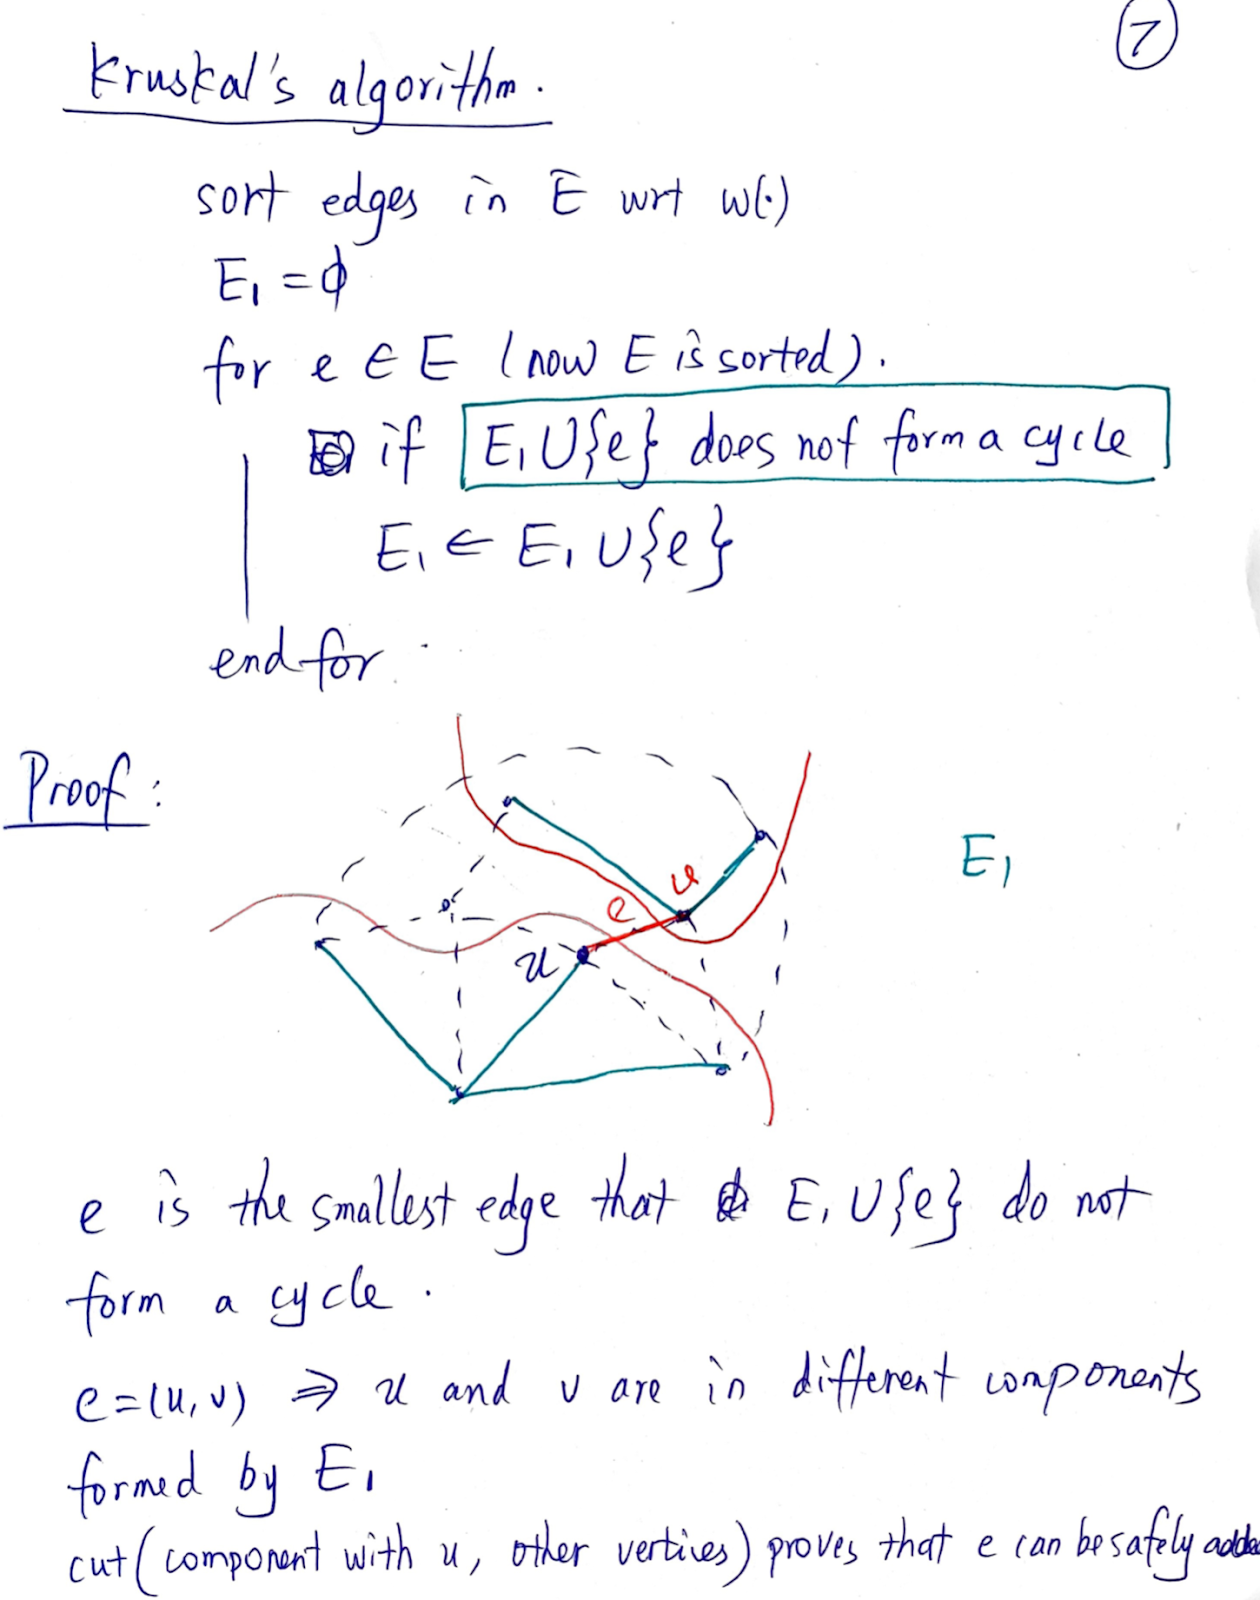 7
Kruskal's algorithm.
sort edges in E wrt w(·)
E₁ = ϕ
for e ∈ E (now E is sorted).
if E₁ ∪ {e} does not form a cycle
E₁ ← E₁ ∪ {e}
end for.
Proof:
E₁
e
v
u
e is the smallest edge that E₁ ∪ {e} do not
form a cycle.
e = (u, v) ⇒ u and v are in different components
formed by E₁
cut (component with u, other vertices) proves that e can be safely